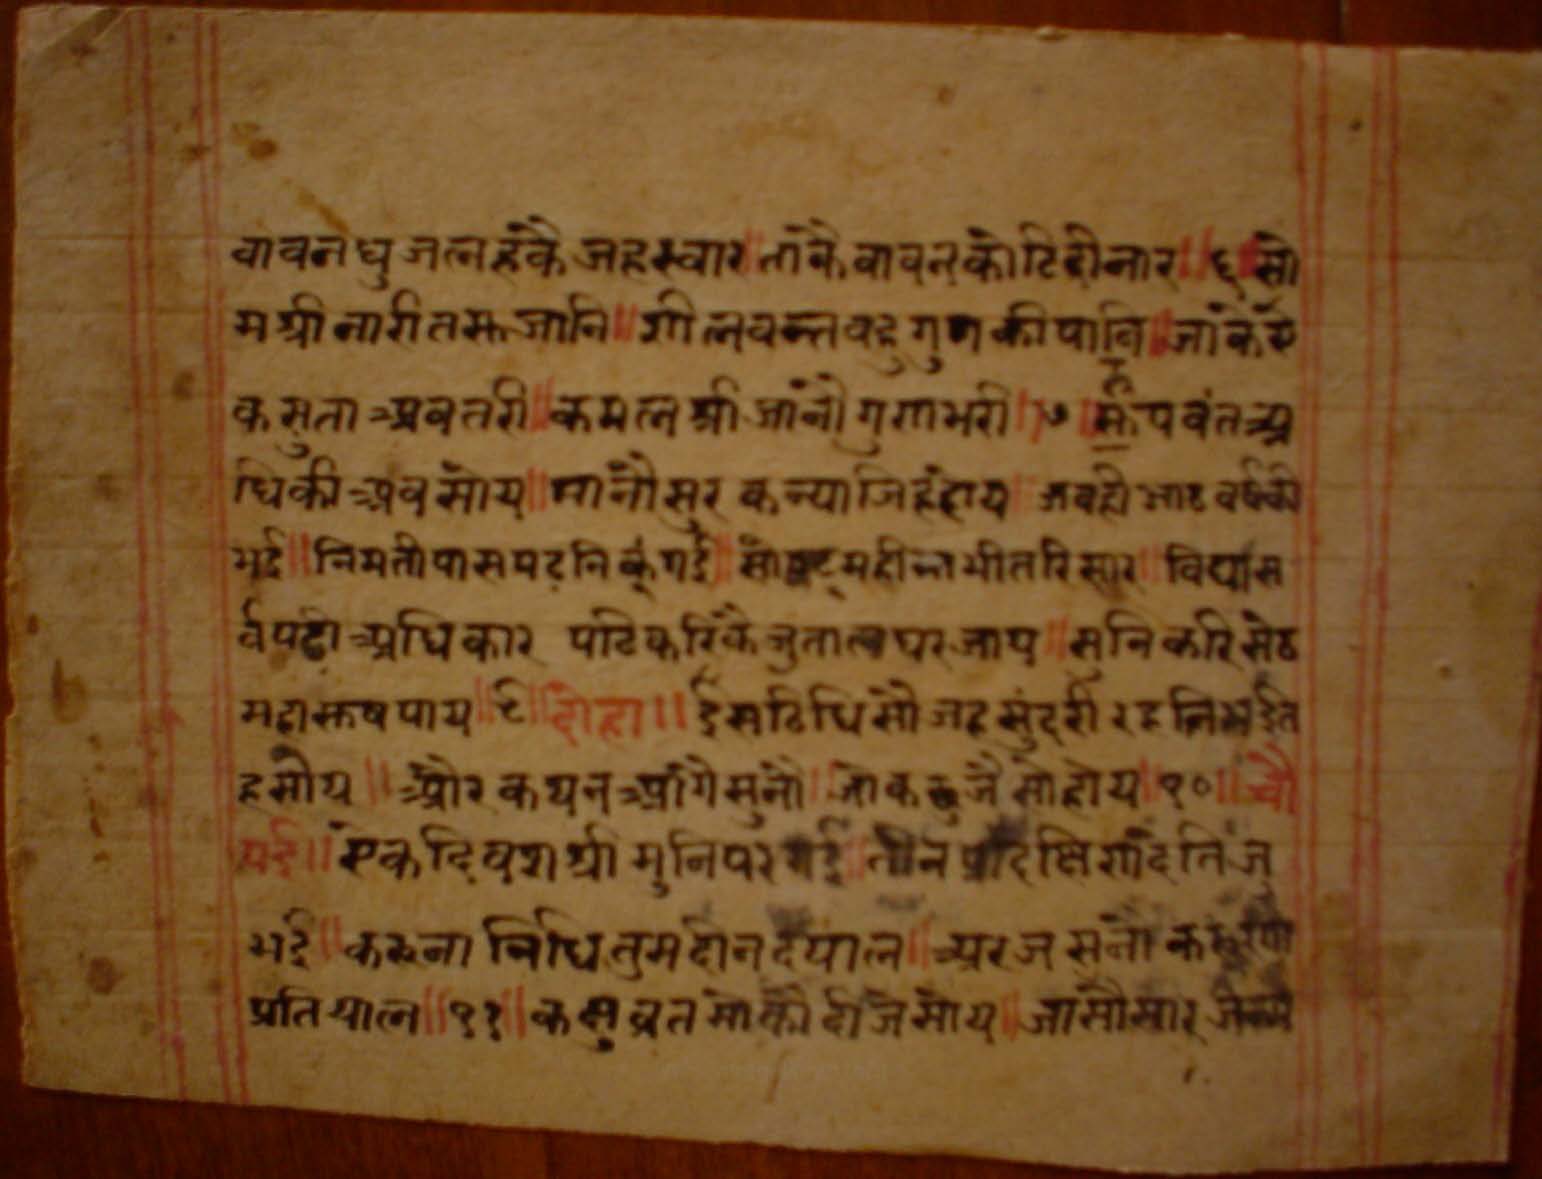 वावनधुजलहंकै जहस्वार॥ तांकै वावन कोटि दीनार॥६॥ सो
मश्री नारी तस्त जानि॥ शीलवन्त वहु गुण की षानि॥ जांकै ऐ
क सुता अवतरी॥ कमलश्री जांनौ गुणभरी॥७॥ रूपवंत अ
धिकी अव सोय॥ मानौ सुर कन्या जिहं होय॥ जवही आठ वर्ष की
भई॥ निमती पास पढ़नि कूं गई॥ सो षट् महीन्त भीतरि सार॥ विद्या स
र्व पढी अधिकार पंढि करिकै जु तात घर जाय॥ सुनि करि सेठ
महा सुष पाय॥९॥ दोहा॥ ईस विधि सौं जह सुंदरी रह
ह सोय॥ और कथन आगै सुनौ॥ जो कछु जै सो होय॥१०॥ चौ
पई॥ ऐक दिवश श्री मुनि पर गई॥ तीन प्रदिक्षिणां देति ज
भई॥ करुना निधि तुम दीन दयाल॥ अरज सुनौ
प्रतिपाल॥११॥ कछु व्रत मोकौ दीजै सोय॥ जासौ सार